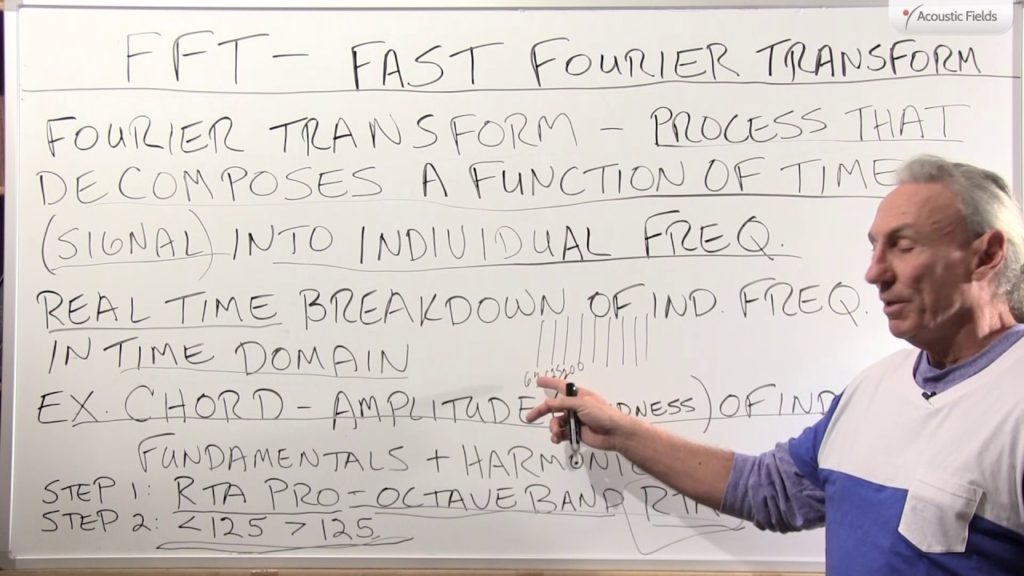 Acoustic Fields
FFT - FAST FOURIER TRANSFORM
FOURIER TRANSFORM - PROCESS THAT
DECOMPOSES A FUNCTION OF TIME
(SIGNAL) INTO INDIVIDUAL FREQ.
REAL TIME BREAKDOWN OF IND. FREQ.
IN TIME DOMAIN
EX. CHORD - AMPLITUDE OF IND
FUNDAMENTALS + HARMONIC
STEP 1: RTA PRO = OCTAVE BAND RTA
STEP 2: <125 >125